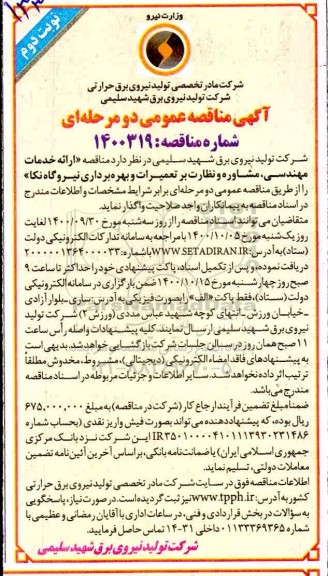 وزارت نیرو
نوبت دوم
شرکت مادر تخصصی تولید نیروی برق حرارتی
شرکت تولید نیروی برق شهید سلیمی
آگهی مناقصه عمومی دو مرحله‌ای
شماره مناقصه: ۱۴۰۰۳۱۹
شرکت تولید نیروی برق شهید سلیمی در نظر دارد مناقصه «ارائه خدمات
مهندسی، مشاوره و نظارت بر تعمیرات و بهره‌برداری نیروگاه نکا»
را از طریق مناقصه عمومی دو مرحله‌ای برابر شرایط مشخصات و اطلاعات مندرج
در اسناد مناقصه به پیمانکاران واجد صلاحیت واگذار نماید.
متقاضیان می‌توانند اسناد مناقصه را از روز سه‌شنبه مورخ ۱۴۰۰/۰۹/۳۰ لغایت
روز یک‌شنبه مورخ ۱۴۰۰/۱۰/۰۵ با مراجعه به سامانه تدارکات الکترونیکی دولت
(ستاد) به آدرس: WWW.SETADIRAN.IR با شماره:
دریافت نموده و پس از تکمیل اسناد، پاکت پیشنهادی خود را حداکثر تا ساعت ۹
صبح روز چهارشنبه مورخ ۱۴۰۰/۱۰/۱۵ ضمن بارگزاری در سامانه الکترونیکی
دولت (ستاد)، فقط پاکت «الف» را بصورت فیزیکی به آدرس: ساری-بلوار آزادی
-خیابان ورزش-انتهای کوچه شهید عباس مددی (ورزش ۲) شرکت تولید
نیروی برق شهید سلیمی ارسال نمایند. کلیه پیشنهادات واصله رأس ساعت
۱۱ صبح همان روز در سالن جلسات شرکت بازگشایی خواهد شد. بدیهی است
به پیشنهادهای فاقد امضاء الکترونیکی (دیجیتالی)، مشروط، مخدوش مطلقاً
ترتیب اثر داده نخواهد شد. سایر اطلاعات و جزئیات مربوطه در اسناد مناقصه
مندرج می‌باشد.
ضمناً مبلغ تضمین فرآیند ارجاع کار (شرکت در مناقصه) به مبلغ ۶۷۵,۰۰۰,۰۰۰
ریال بوده، که پیشنهاددهنده می‌تواند بصورت فیش واریز نقدی (بحساب شماره
این شرکت نزد بانک مرکزی
جمهوری اسلامی ایران) یا ضمانت‌نامه بانکی، بر اساس آخرین آئین‌نامه تضمین
معاملات دولتی، تسلیم نماید.
اطلاعات مناقصه فوق در سایت شرکت مادر تخصصی تولید نیروی برق حرارتی
کشور به آدرس: www.tpph.ir نیز ثبت گردیده است. در صورت نیاز، پاسخگویی
به سؤالات در بخش قراردادی و فنی، در ساعات اداری با آقایان رمضانی و عظیمی با
شماره ۰۱۱۳۳۳۶۹۳۶۵ داخلی ۳۱-۱۴ تماس حاصل فرمایید.
شرکت تولید نیروی برق شهید سلیمی